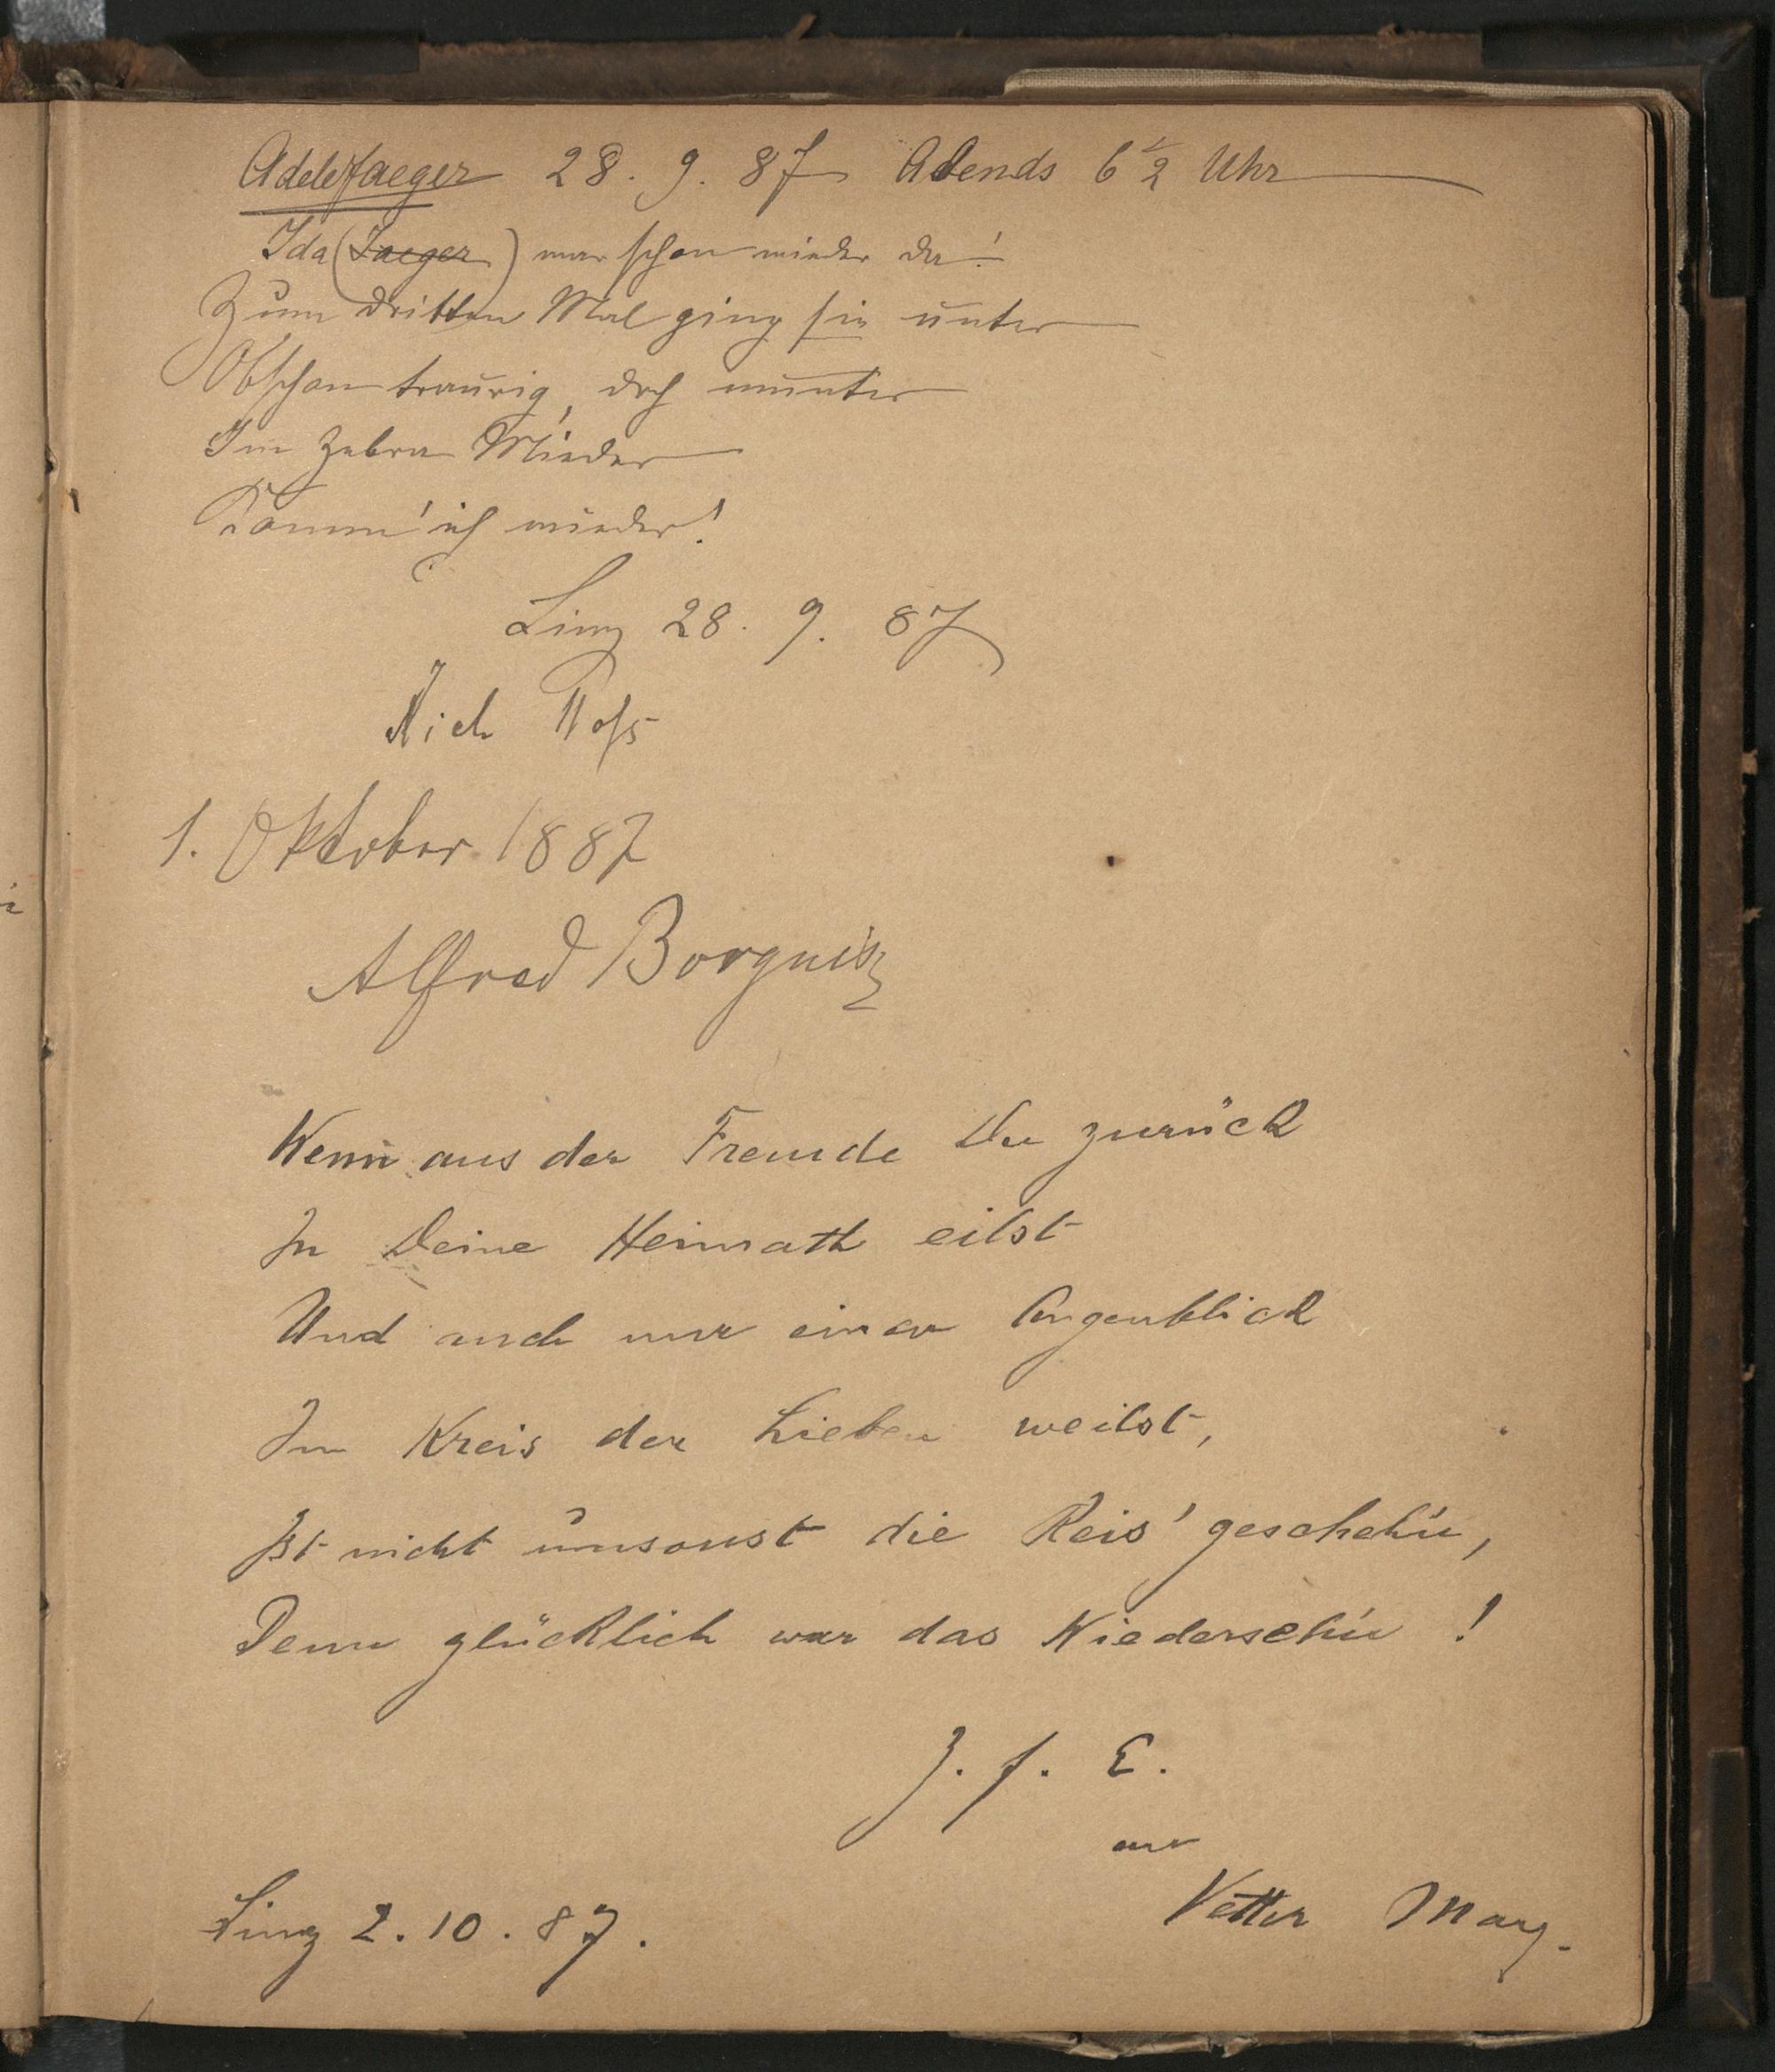 Adele Jaeger 28. 9. 87 Abends 6 1/2 Uhr
Ida (Jaeger) war schon wieder da!
Zum dritten Mal ging sie unter
Obschon traurig, doch munter
Im Zebra Mieder
Komm' ich wieder!
Linz 28. 9. 87
1. Oktober 1887
Alfred Borgnis
Wenn aus der Fremde Du zurück
In Deine Heimath eilst
Und auch nur einen Augenblick
Im Kreis der Lieben weilst,
Ist nicht umsonst die Reis' gescheh'n,
Denn glücklich war das Wiederseh'n!
Z. f. E.
an
Linz 2. 10. 87.
Vetter